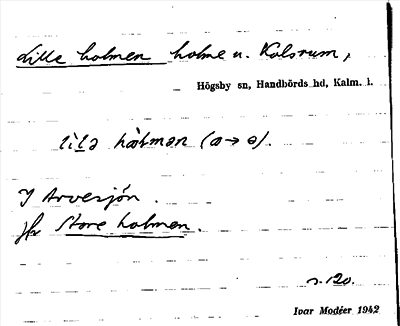 Lille holmen holme u. Kolsrum,
Högsby sn, Handbörds hd, Kalm. l.
lilə hòlmən (ɷ → ɵ).
I Arvesjön.
Jfr Store holmen.
s. 120.
Ivar Modéer 1942